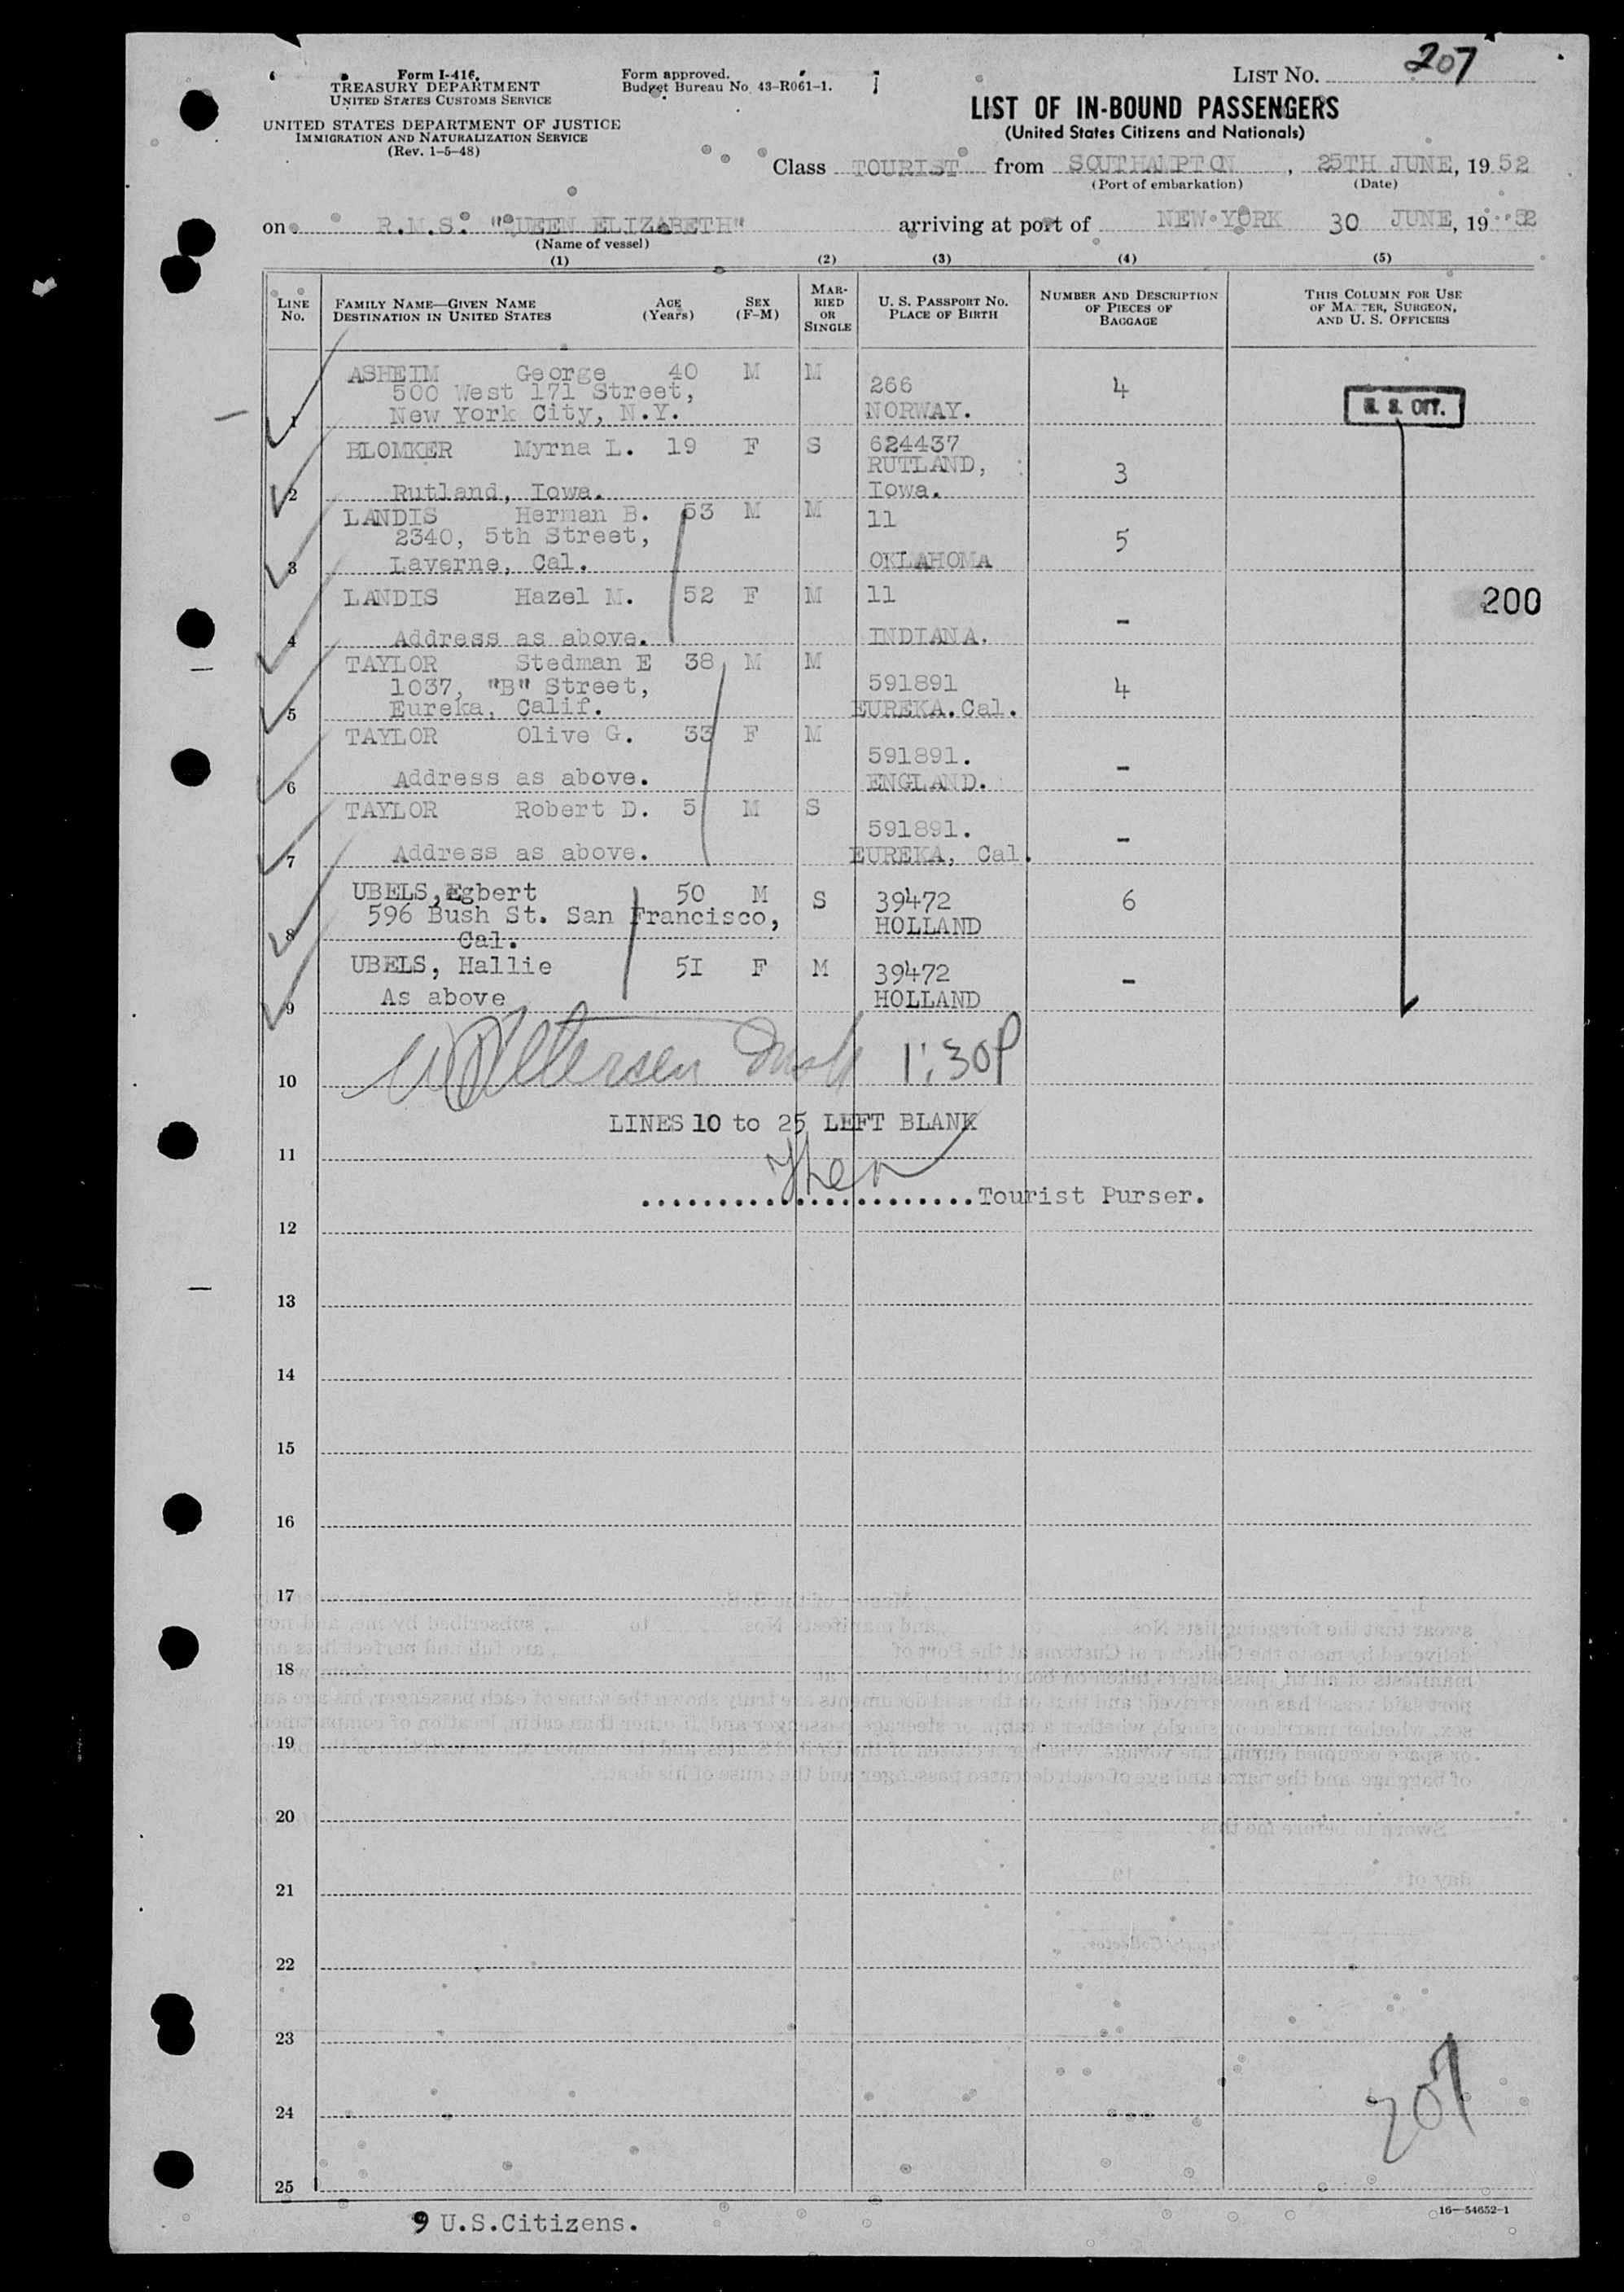 207
Form I-416.
TREASURY DEPARTMENT
UNITED STATES CUSTOMS SERVICE
UNITED STATES DEPARTMENT OF JUSTICE
IMMIGRATION AND NATURALIZATION SERVICE
(Rev. 1-5-48)
Form approved.
Budget Bureau No. 43-R061-1.
LIST NO.
LIST OF IN-BOUND PASSENGERS
(United States Citizens and Nationals)
Class TOURIST from SOUTHAMPTON, 25TH JUNE, 19 52
(Port of embarkation) (Date)
on R.M.S. "QUEEN ELIZABETH" arriving at port of NEW YORK 30 JUNE, 19 52
(Name of vessel)
(1) (2) (3) (4) (5)
LINE NO.
FAMILY NAME—GIVEN NAME
DESTINATION IN UNITED STATES
AGE (Years)
SEX (F-M)
MARRIED OR SINGLE
U. S. PASSPORT NO.
PLACE OF BIRTH
NUMBER AND DESCRIPTION OF PIECES OF BAGGAGE
THIS COLUMN FOR USE OF MASTER, SURGEON, AND U. S. OFFICERS
1 ASHEIM George 40 M M 266 4
500 West 171 Street,
New York City, N.Y. NORWAY.
U. S. CIT.
2 BLOMKER Myrna L. 19 F S 624437 3
RUTLAND,
Rutland, Iowa. Iowa.
3 LANDIS Herman B. 53 M M 11 5
2340, 5th Street,
Laverne, Cal. OKLAHOMA
4 LANDIS Hazel M. 52 F M 11 -
Address as above. INDIANA.
200
5 TAYLOR Stedman E 38 M M 591891 4
1037, "B" Street,
Eureka, Calif. EUREKA.Cal.
6 TAYLOR Olive G. 33 F M 591891. -
Address as above. ENGLAND.
7 TAYLOR Robert D. 5 M S 591891. -
Address as above. EUREKA, Cal.
8 UBELS,Egbert 50 M S 39472 6
596 Bush St. San Francisco, HOLLAND
Cal.
9 UBELS, Hallie 51 F M 39472 -
As above HOLLAND
10 1:30P
LINES 10 to 25 LEFT BLANK
11
Tourist Purser.
12
13
14
15
16
17
18
19
20
21
22
23
24
25
207
16—54652-1
9 U.S.Citizens.